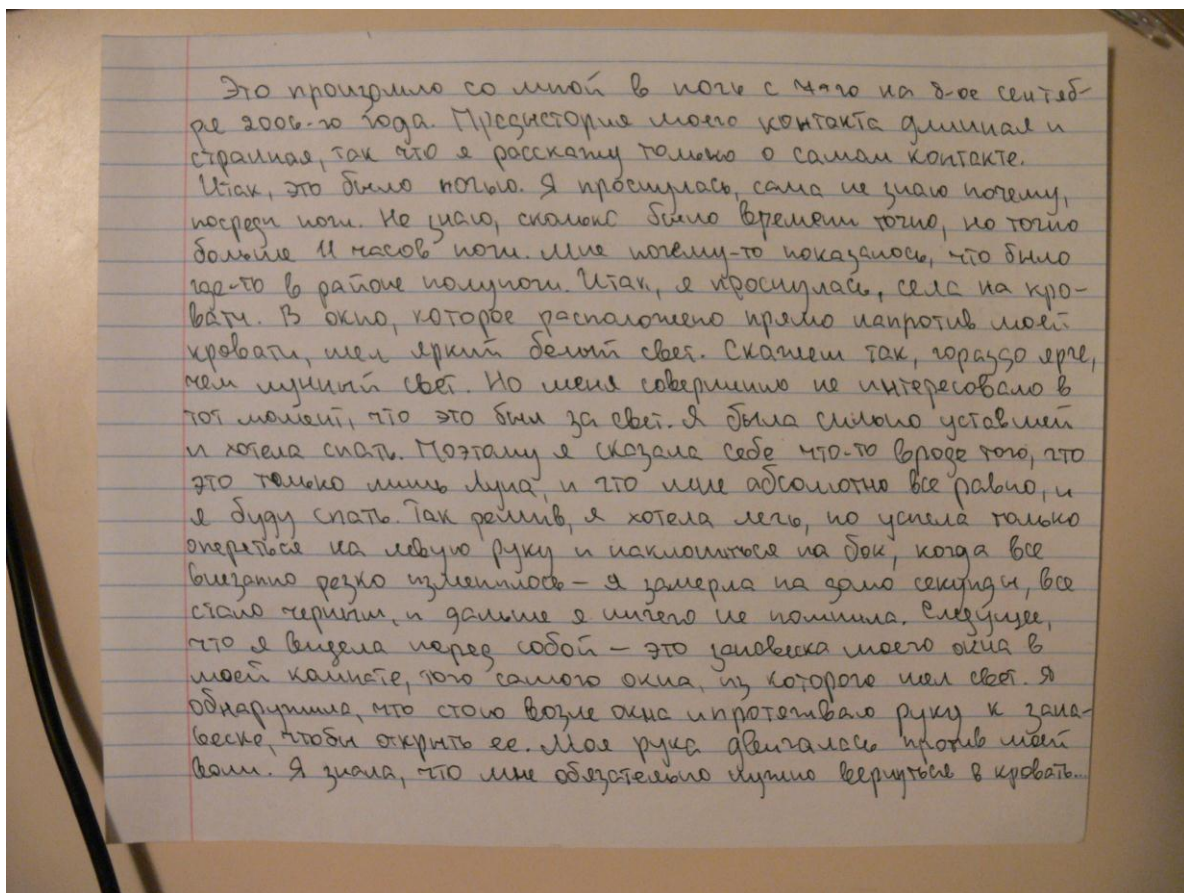 Это произошло со мной в ночь с 7-го на 8-ое сентяб-
ря 2006-го года. Предыстория моего контакта длинная и
странная, так что я расскажу только о самом контакте.
Итак, это было ночью. Я проснулась, сама не знаю почему,
посреди ночи. Не знаю, сколько было времени точно, но точно
больше 11 часов ночи. Мне почему-то показалось, что было
где-то в районе полуночи. Итак, я проснулась, села на кро-
вати. В окно, которое расположено прямо напротив моей
кровати, шел яркий белый свет. Скажем так, гораздо ярче,
чем лунный свет. Но меня совершенно не интересовало в
тот момент, что это был за свет. Я была сильно уставшей
и хотела спать. Поэтому я сказала себе что-то вроде того, что
это только лишь Луна, и что мне абсолютно все равно, и
я буду спать. Так решив, я хотела лечь, но успела только
опереться на левую руку и наклониться на бок, когда все
внезапно резко изменилось – я замерла на секунды, все
стало черным, и дальше я ничего не помнила. Следущее,
что я видела перед собой – это занавеска моего окна в
моей комнате, того самого окна, из которого шел свет. Я
обнаружила, что стою возле окна и протягиваю руку к зана-
веске, чтобы открыть ее. Моя рука двигалась против моей
воли. Я знала, что мне обязательно нужно вернуться в кровать...